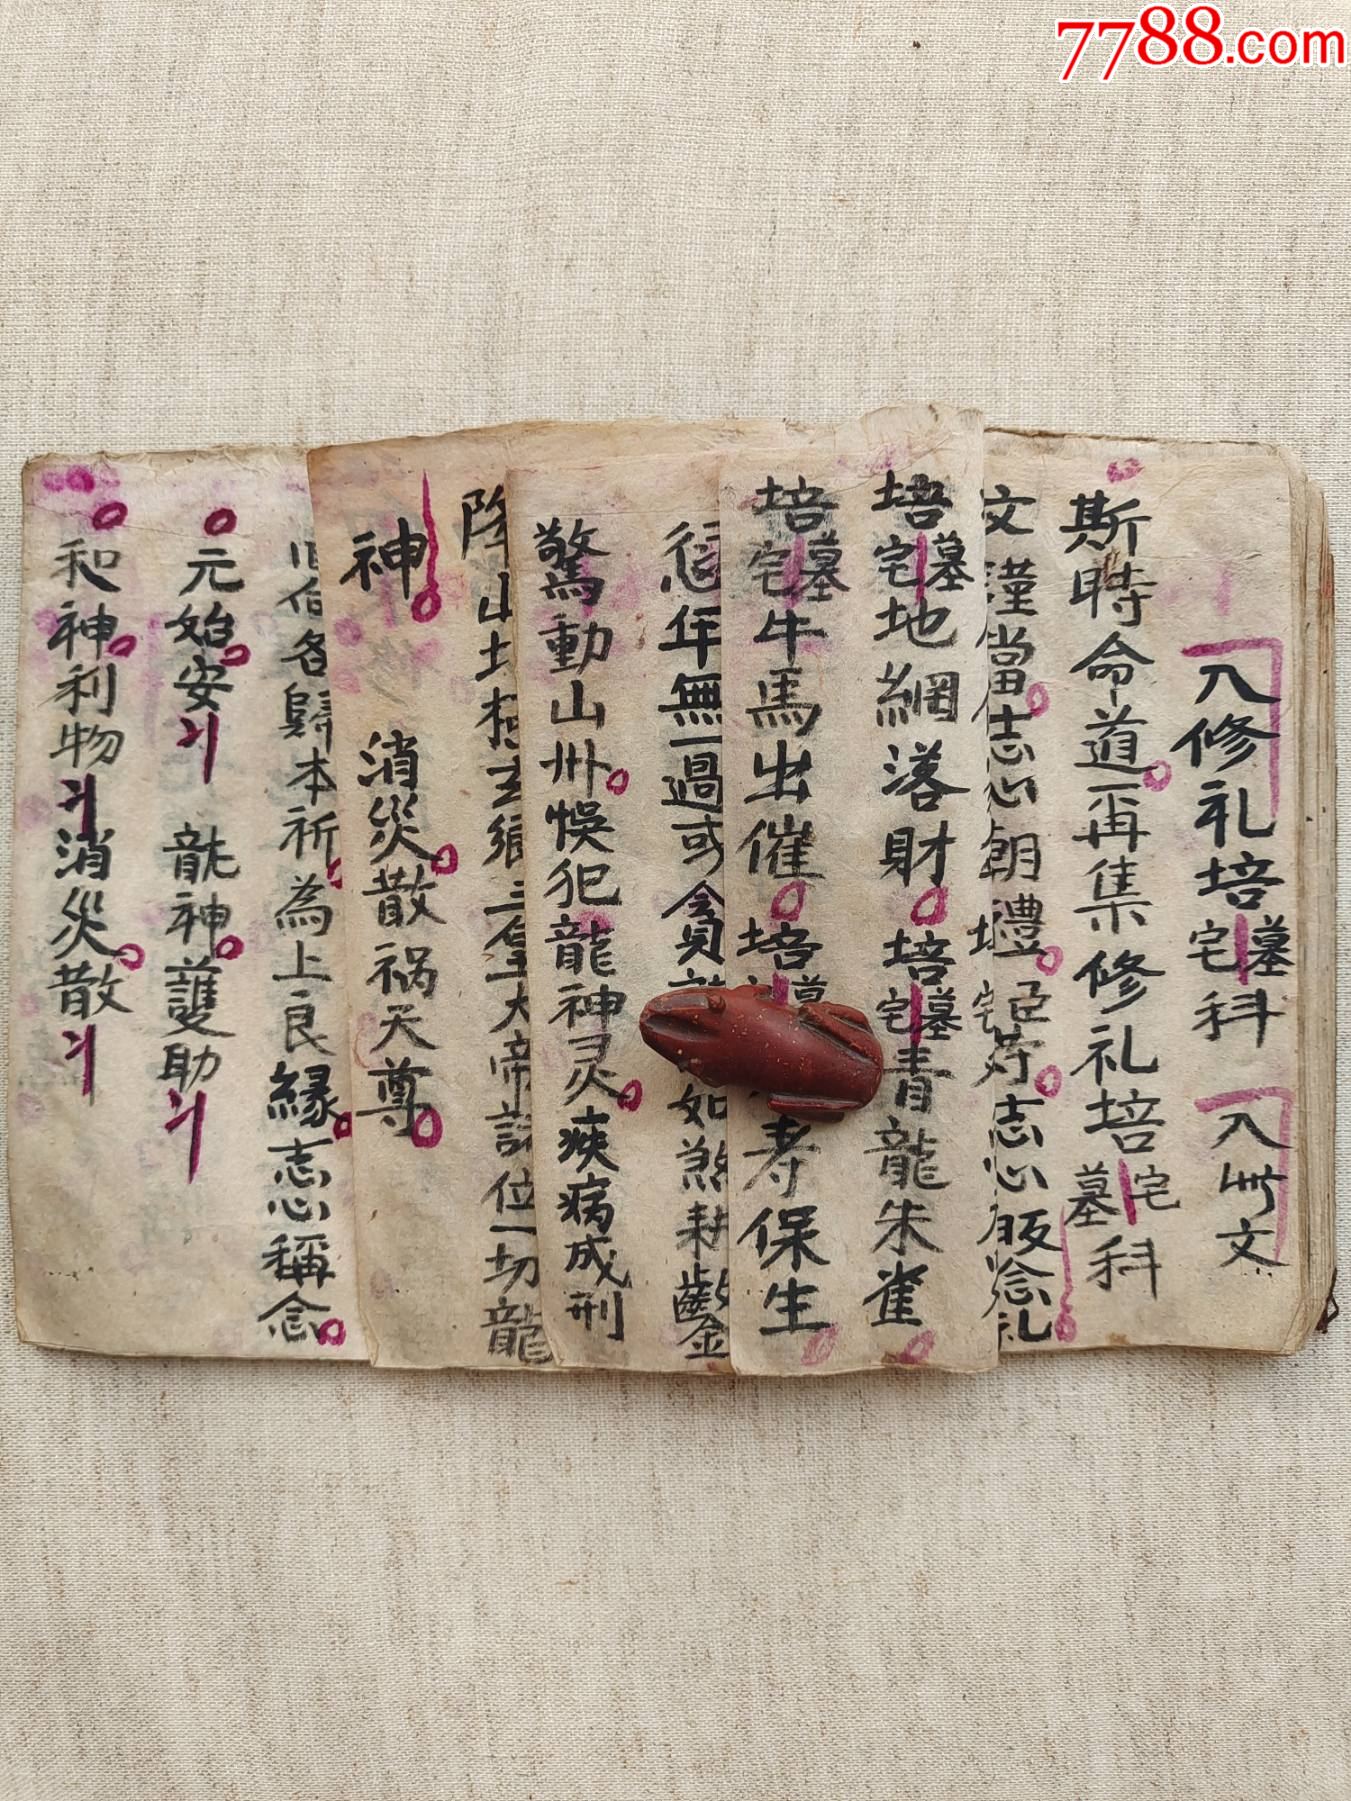 7788.com
入修礼培墓宅科 入此文
斯時命道一再集修礼培墓宅科
文謹當志心朝禮 志心皈 礼
培墓宅地網落財培墓宅青龍朱雀
培墓宅牛馬出催培墓 寿保生
年無一過或貪 如煞耕
驚動山川悮犯龍神灵痰病成刑
隆山土 三皇大帝 位一切龍
神 消災散祸天尊
各歸本祈為上良縁志心稱念
元始安〻 龍神護助〻
和神利物〻消災散〻